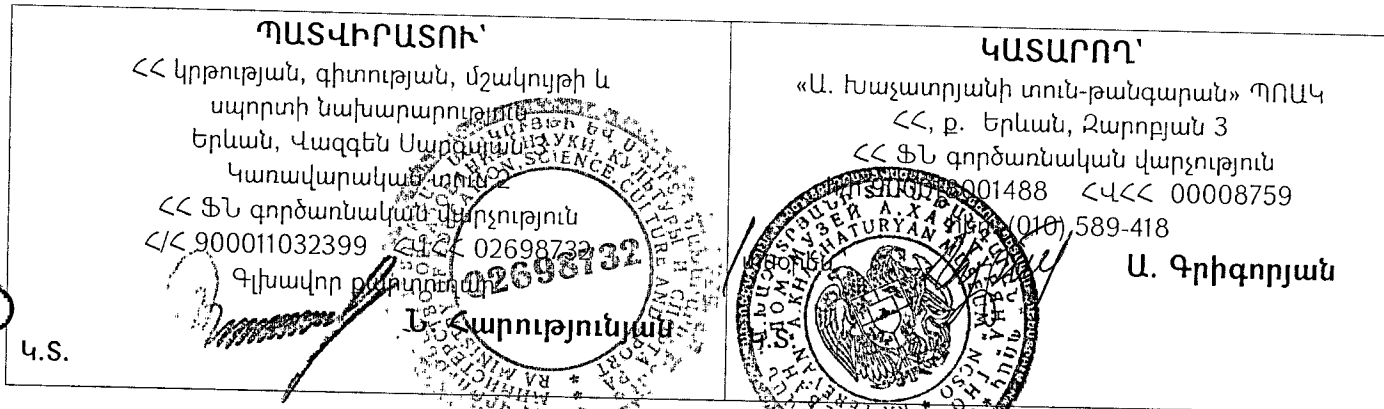 ՊԱՏՎԻՐԱՏՈՒ՝
ՀՀ կրթության, գիտության, մշակույթի և
սպորտի նախարարություն
Երևան, Վազգեն Սարգսյան 3
Կառավարական տուն 2
ՀՀ ՖՆ գործառնական վարչություն
Հ/Հ 900011032399 ՀՎՀՀ 02698732
Գլխավոր քարտուղար
Ն. Հարությունյան
Կ.Տ.
02698732
SCIENCE, CULTURE AND SPORT
ԿԱՏԱՐՈՂ՝
«Ա. Խաչատրյանի տուն-թանգարան» ՊՈԱԿ
ՀՀ, ք. Երևան, Զարոբյան 3
ՀՀ ՖՆ գործառնական վարչություն
001488 ՀՎՀՀ 00008759
(010) 589-418
Տնօրեն՝
Ա. Գրիգորյան
Կ.Տ.